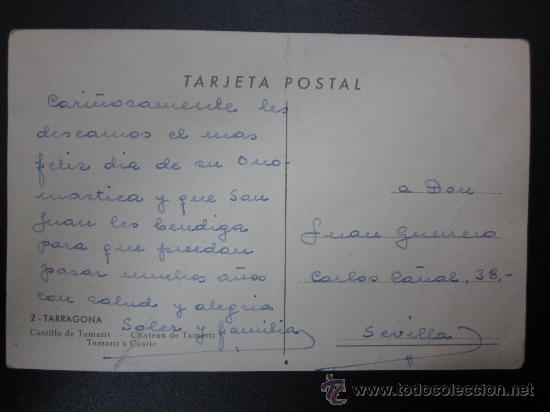 TARJETA POSTAL
Cariñosamente les
deseamos el mas
feliz dia de su Ono-
mastica y que San
Juan les bendiga
para que puedan
pasar muchos años
con salud y alegria
Soler y familia
2 - TARRAGONA
Castillo de Tamarit - Château de Tamarit
Tamarit's Castle
a Don
Juan Guerrero
Carlos Cañal, 38.-
Sevilla
© www.todocoleccion.net